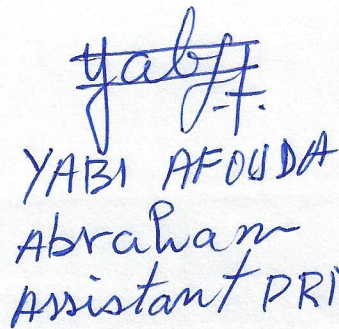 YABI AFOUDA
Abraham
Assistant DRI